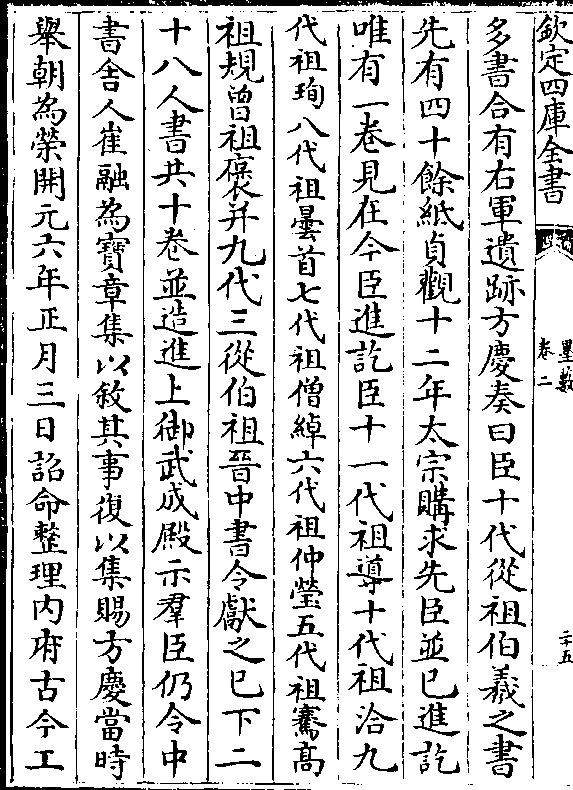 欽定四庫全書
墨藪
卷二
二十五
多書合有右軍遺跡方慶奏曰臣十代從祖伯羲之書
先有四十餘紙貞觀十二年太宗購求先臣並已進訖
唯有一卷見在今臣進訖臣十一代祖導十代祖洽九
代祖珣八代祖曇首七代祖僧綽六代祖仲瑩五代祖騫高
祖規曾祖褒并九代三從伯祖晉中書令獻之已下二
十八人書共十卷並造進上御武成殿示羣臣仍令中
書舍人崔融為寶章集以敘其事復以集賜方慶當時
舉朝為榮開元六年正月三日詔命整理內府古今工